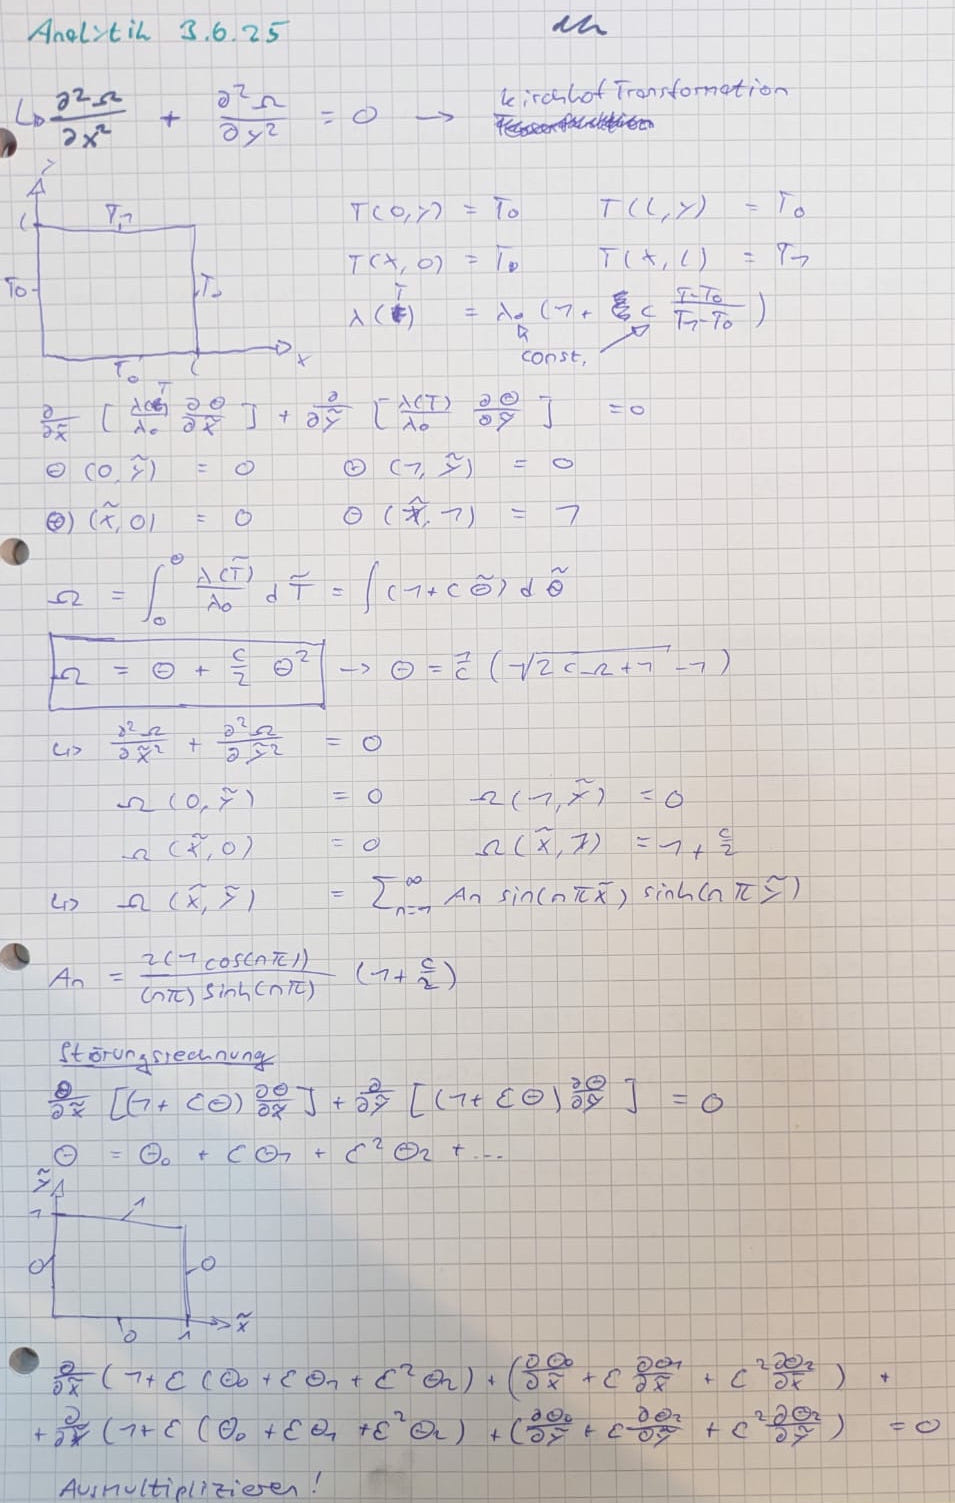 Analytik 3.6.25
↳ ∂²Ω/∂x² + ∂²Ω/∂y² = 0 → Kirchhof Transformation
T(0,y) = T₀ T(L,y) = T₀
T(x,0) = T₀ T(x,L) = T₁
λ(T) = λ₀ (1 + c (T-T₀)/(T₁-T₀))
const.
y
L
T₁
T₀
T₀
T₀
L
x
∂/∂x̃ [λ(T)/λ₀ ∂Θ/∂x̃] + ∂/∂ỹ [λ(T)/λ₀ ∂Θ/∂ỹ] = 0
Θ (0,ỹ) = 0 Θ (1,ỹ) = 0
Θ (x̃,0) = 0 Θ (x̃,1) = 1
Ω = ∫₀^Θ λ(T̃)/λ₀ dT̃ = ∫(1+cΘ̃) dΘ̃
Ω = Θ + c/2 Θ² → Θ = 1/c (√(2cΩ+1) -1)
↳ ∂²Ω/∂x̃² + ∂²Ω/∂ỹ² = 0
Ω (0,ỹ) = 0 Ω (1,ỹ) = 0
Ω (x̃,0) = 0 Ω (x̃,1) = 1 + c/2
↳ Ω (x̃,ỹ) = Σ_{n=1}^∞ An sin(nπx̃) sinh(nπỹ)
An = 2(1 cos(nπ))/((nπ) sinh(nπ)) (1+ c/2)
Störungsrechnung
∂/∂x̃ [(1+ εΘ) ∂Θ/∂x̃] + ∂/∂ỹ [(1+ εΘ) ∂Θ/∂ỹ] = 0
Θ = Θ₀ + εΘ₁ + ε²Θ₂ + ...
ỹ
1
1
0
0
0
1
x̃
∂/∂x̃ (1+ε(Θ₀+εΘ₁+ε²Θ₂) + (∂Θ₀/∂x̃ + ε ∂Θ₁/∂x̃ + ε² ∂Θ₂/∂x̃) +
+ ∂/∂ỹ (1+ε(Θ₀+εΘ₁+ε²Θ₂) + (∂Θ₀/∂ỹ + ε ∂Θ₂/∂ỹ + ε² ∂Θ₂/∂ỹ) = 0
Ausmultiplizieren!